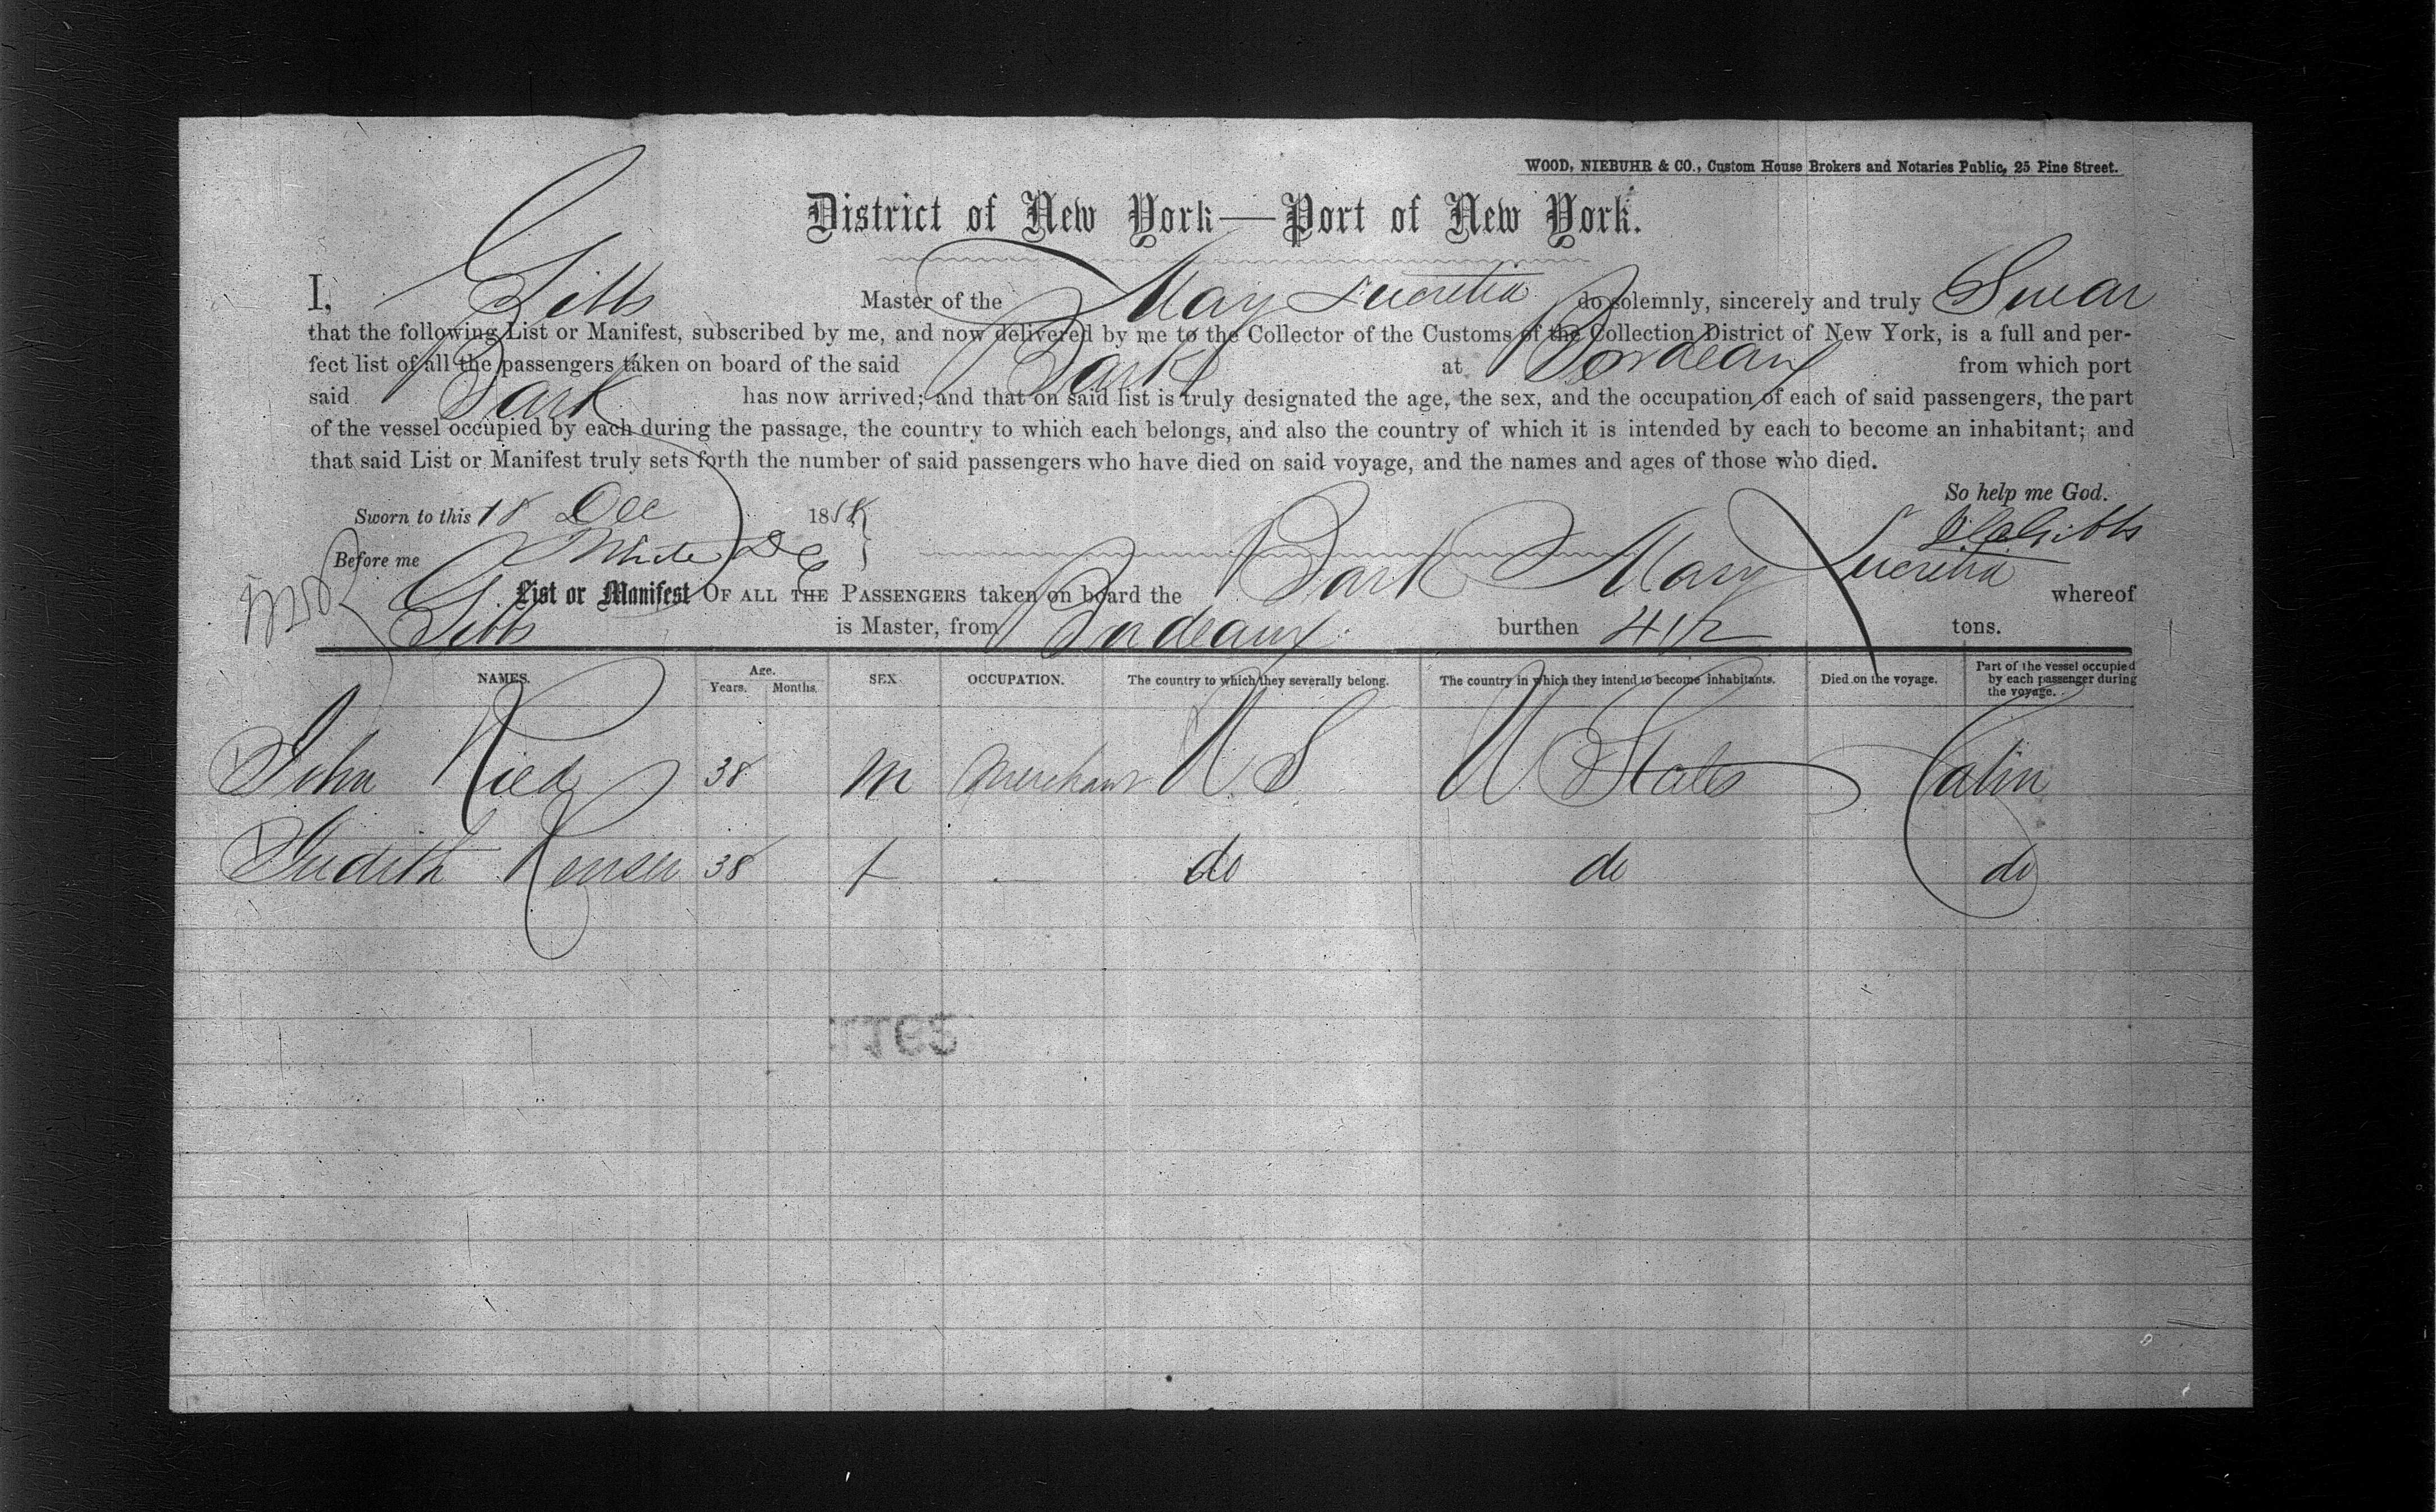 WOOD, NIEBUHR & CO., Custom House Brokers and Notaries Public, 25 Pine Street.
District of New York—Port of New York.
I, Gibbs Master of the Mary Lucretia do solemnly, sincerely and truly Swear
that the following List or Manifest, subscribed by me, and now delivered by me to the Collector of the Customs of the Collection District of New York, is a full and per-
fect list of all the passengers taken on board of the said Bark at Bordeaux from which port
said Bark has now arrived; and that on said list is truly designated the age, the sex, and the occupation of each of said passengers, the part
of the vessel occupied by each during the passage, the country to which each belongs, and also the country of which it is intended by each to become an inhabitant; and
that said List or Manifest truly sets forth the number of said passengers who have died on said voyage, and the names and ages of those who died.
So help me God.
Sworn to this 18 Dec 18
Before me White Gibbs
List or Manifest OF ALL THE PASSENGERS taken on board the Bark Mary Lucretia whereof
Gibbs is Master, from Bordeaux burthen 412 tons.
NAMES. Age. Years. Months. SEX. OCCUPATION. The country to which they severally belong. The country in which they intend to become inhabitants. Died on the voyage. Part of the vessel occupied by each passenger during the voyage.
John Ried 38 M Merchant U S U States Cabin
Judith 38 f — do do do